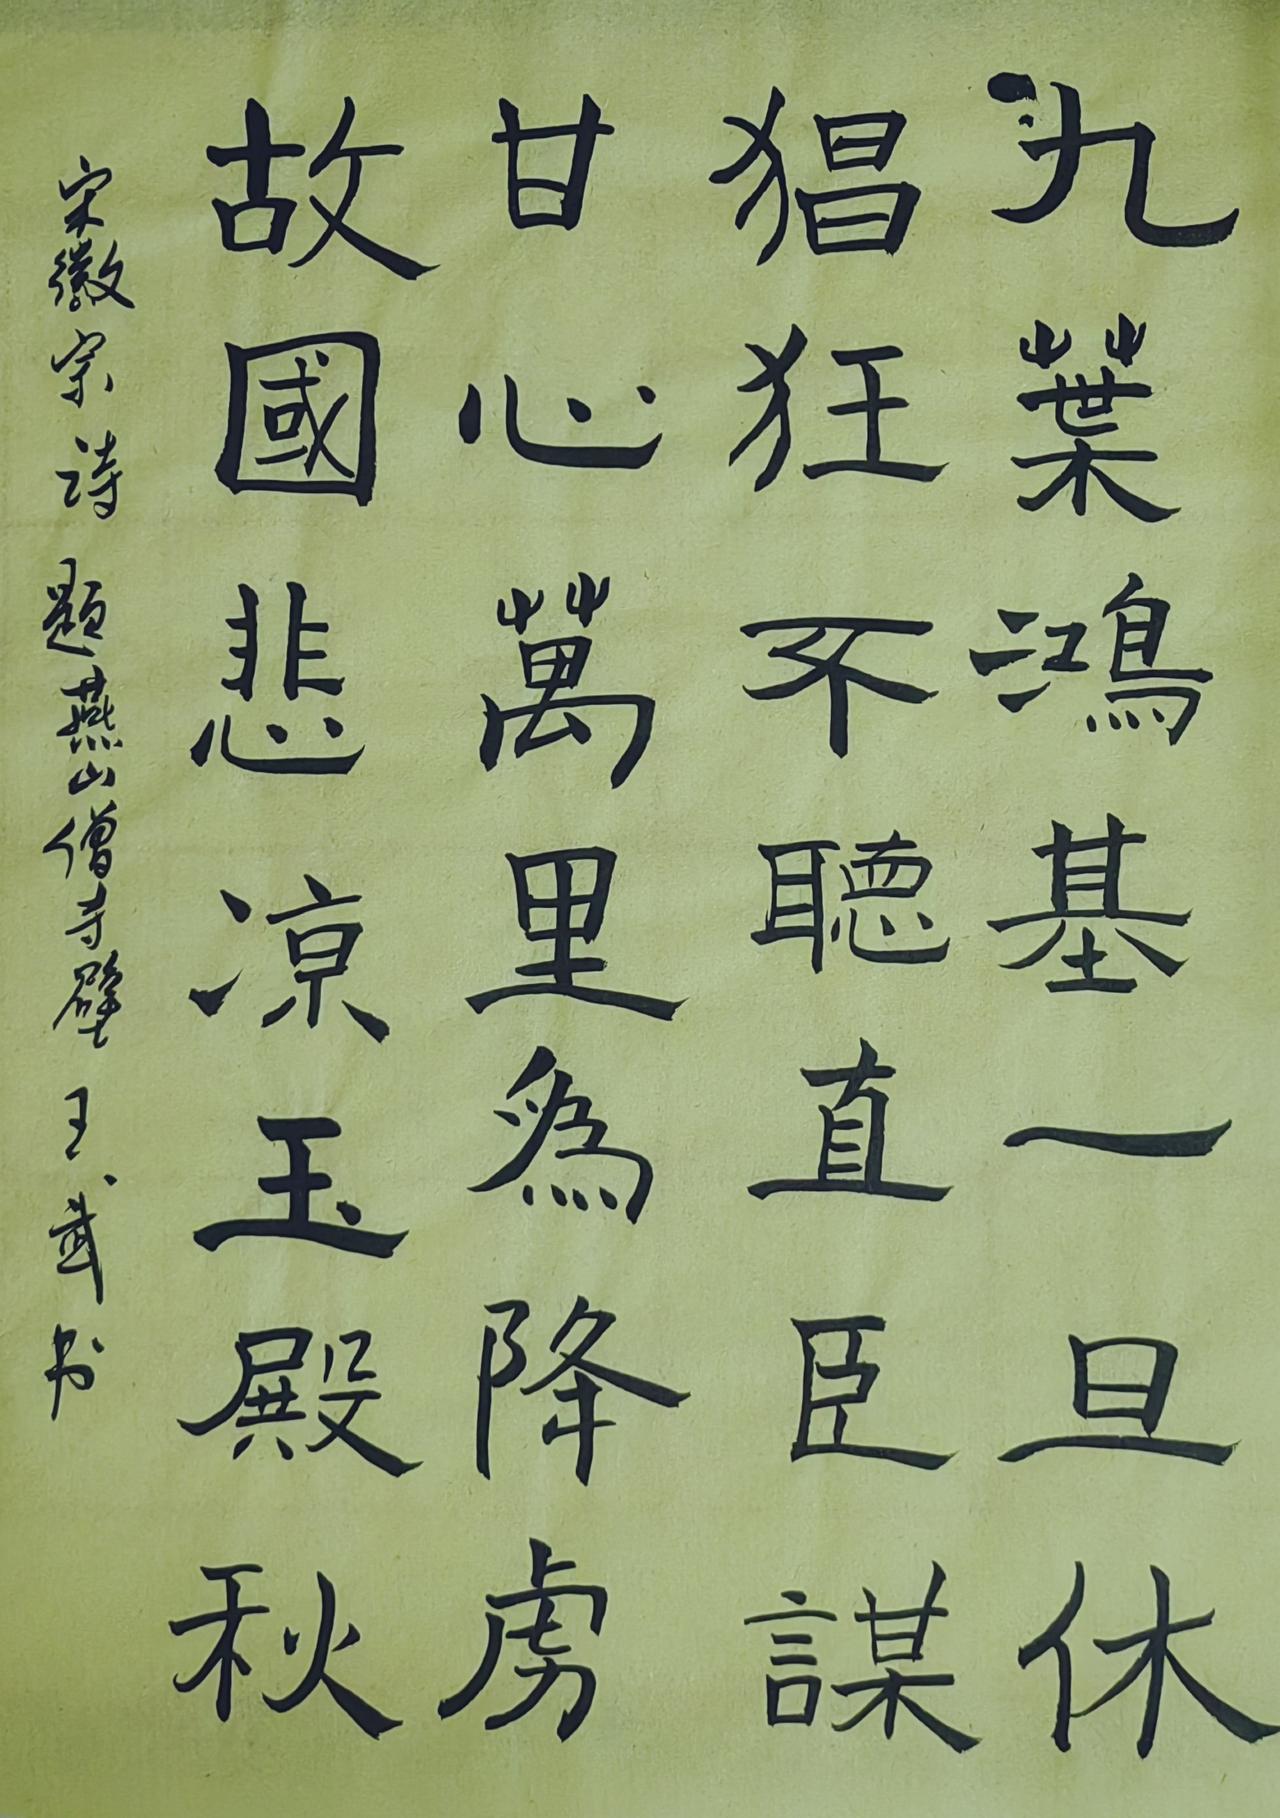 九葉鴻基一旦休
猖狂不聽直臣謀
甘心萬里為降虜
故國悲凉玉殿秋
宋徽宗诗题燕山僧寺壁王武书